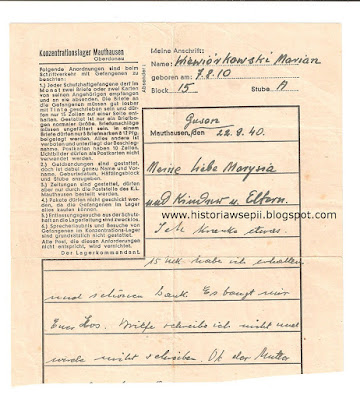 Konzentrationslager Mauthausen
Oberdonau
Folgende Anordnungen sind beim
Schriftverkehr mit Gefangenen zu
beachten:
1.) Jeder Schutzhaftgefangene darf im
Monat zwei Briefe oder zwei Karten
von seinen Angehörigen empfangen
und an sie absenden. Die Briefe an
die Gefangenen müssen gut lesbar
mit Tinte geschrieben sein und dürfen
nur 15 Zeilen auf einer Seite ent-
halten. Gestattet ist nur ein Briefbo-
gen normaler Größe. Briefumschläge
müssen ungefüttert sein. In einem
Briefe dürfen nur 5 Briefmarken à 12 Pfg.
beigelegt werden. Alles andere ist
verboten und unterliegt der Beschlag-
nahme. Postkarten haben 10 Zeilen.
Lichtbilder dürfen als Postkarten nicht
verwendet werden.
2.) Geldsendungen sind gestattet,
doch ist dabei genau Name und Vorna-
me, Geburtsdatum, Häftlingsblock
und Stube anzugeben.
3.) Zeitungen sind gestattet, dürfen
aber nur durch die Poststelle des K.L.
Mauthausen bestellt werden.
4.) Pakete dürfen nicht geschickt wer-
den, da die Gefangenen im Lager
alles kaufen können.
5.) Entlassungsgesuche aus der Schutz-
haft an die Lagerleitung sind zwecklos.
6.) Sprecherlaubnis und Besuche von
Gefangenen im Konzentrations-Lager
sind grundsätzlich nicht gestattet.
Alle Post, die diesen Anforderungen
nicht entspricht, wird vernichtet.
Der Lagerkommandant.
Absender:
Meine Anschrift:
Name: Wiewiórkowski Marian
geboren am: 7.8.10
Block 15 Stube A
Gusen
Mauthausen, den 22.9.40.
Meine liebe Marysia
und Kinder u. Eltern.
www.historiawsepii.blogspot.com
Ich etwas.
15 habe ich erhalten
und schönen Dank. Es bangt mir
Euer Los. Briefe schreibe ich nicht und
werde nicht schreiben. Ob der Mutter